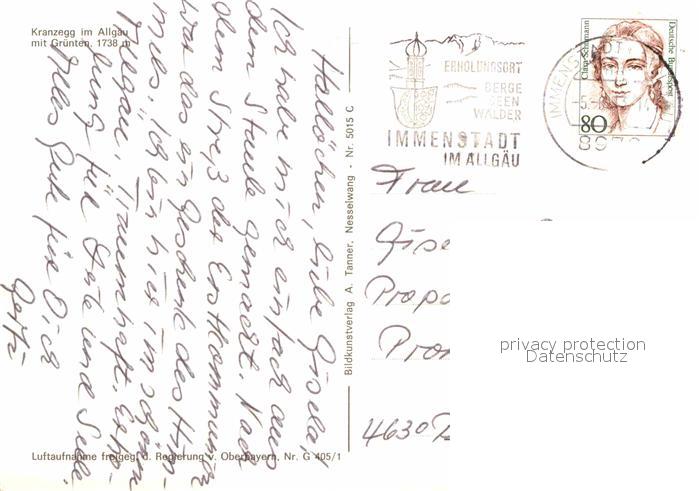 Kranzegg im Allgäu
mit Grünten. 1738 m
Hallöchen, liebe Gisela,
Ich habe mich einfach aus
dem Staube gemacht. Nach
dem Streß der Erstkommunion
war das ein Geschenk des Him-
mels. Ich bin hier im schönen
Allgäu. Traumhaft. Erho-
lung für Leib und Seele.
Alles Gute für Dich
Luftaufnahme freigeg. d. Regierung v. Oberbayern, Nr. G 405/1
Bildkunstverlag A. Tanner, Nesselwang - Nr. 5015 C
ERHOLUNGSORT
BERGE
SEEN
WÄLDER
IMMENSTADT
IM ALLGÄU
Clara Schumann
Deutsche Bundespost
80
IMMENSTADT
Frau
Gise
Pro
4630
privacy protection
Datenschutz